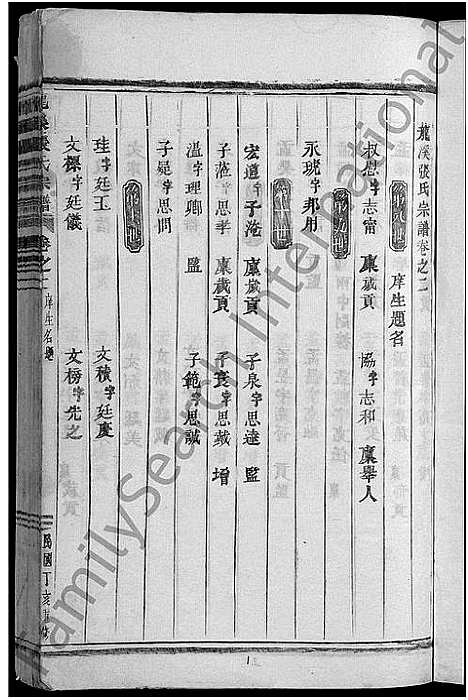 龍溪張氏宗譜卷之二
庠生題名
第八世
叔慰字志甯 廩歲貢 協字志和 廩舉人
第九世
永琥字邦用
第十一世
宏道字子淹 廩歲貢 子泉字思逵 監
子滘字思孝 廩歲貢 子寰字思莪 增
溫字理卿 監 子範字思誠
子冕字思問
珪字廷玉 文積字廷慶
文櫸字廷儀 文榜字先之
氏宗譜 卷之二 庠生名題 民國丁亥重修
FamilySearch International